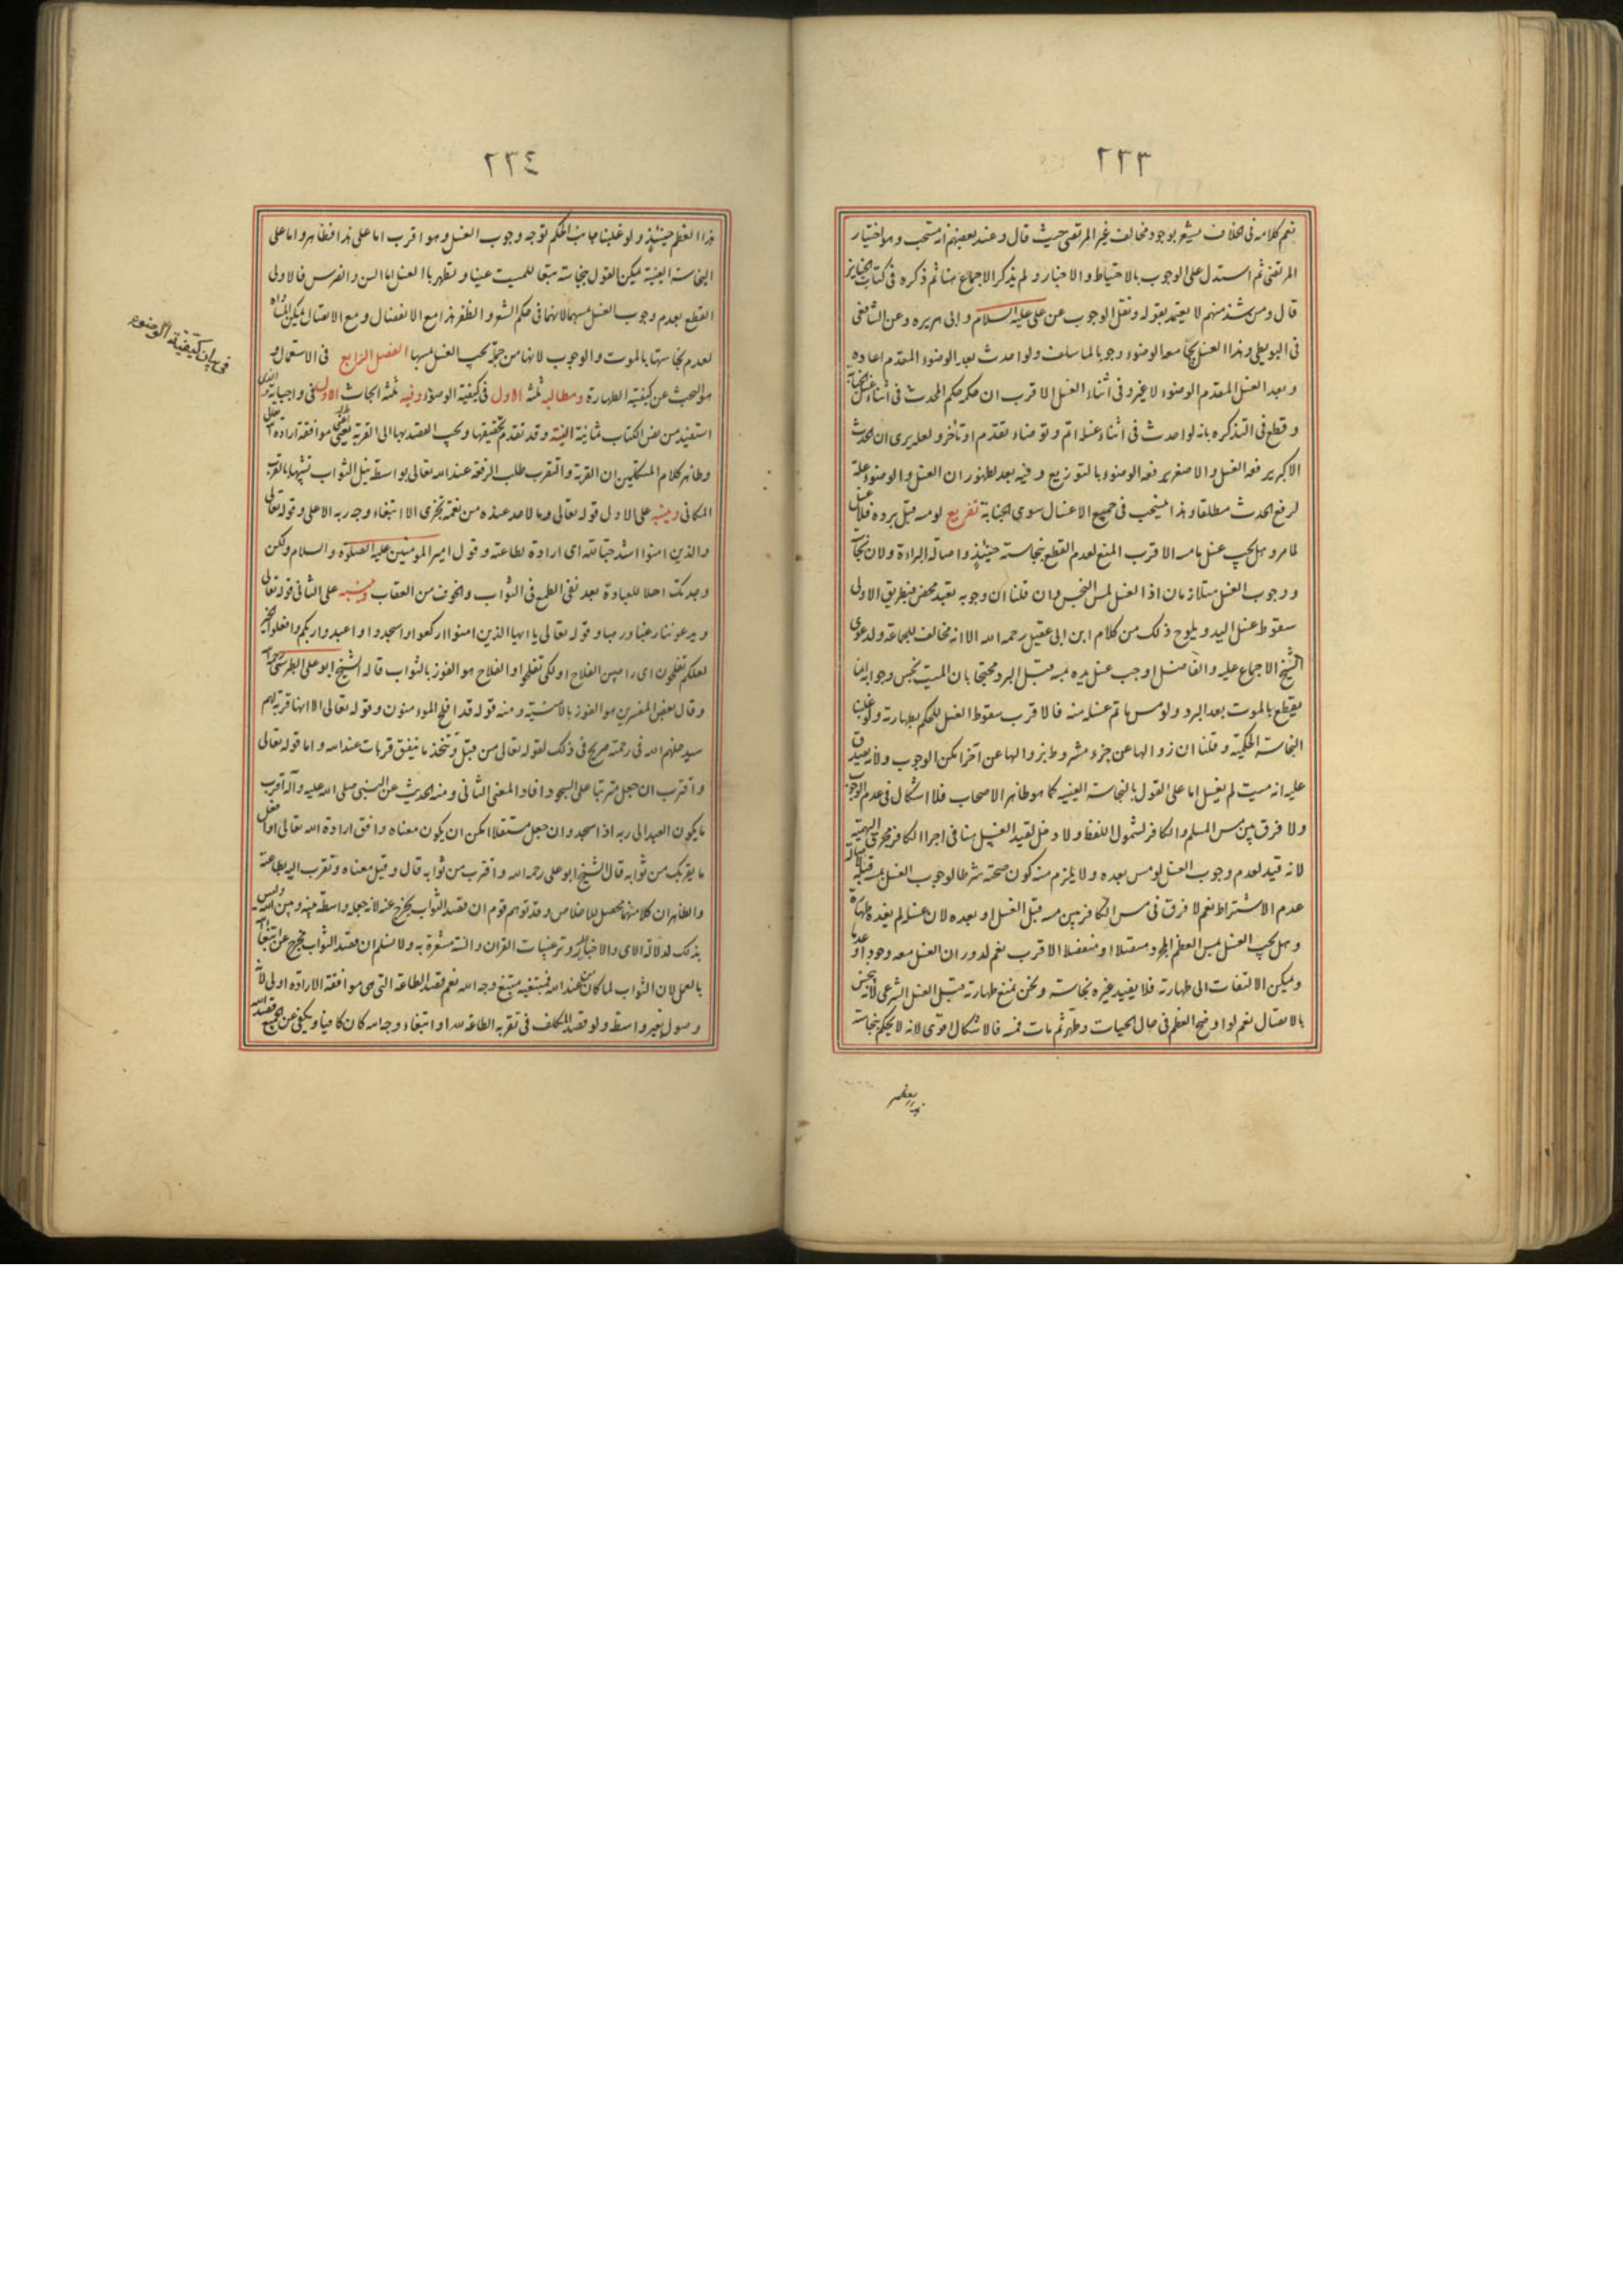 ٢٣٣
نعم كلامه فى الخلاف يشعر بوجود مخالف غير المرتضى حيث قال وعند بعضهم انه مستحب وهو اختيار
المرتضى ثم استدل على الوجوب بالاحتياط والاخبار ولم يذكر الاجماع هنا ثم ذكره فى كتاب الجنايز
قال ومن شذ منهم لا يعتد بقوله ونقل الوجوب عن على عليه السلام وابى هريره وعن الشافعى
فى البويطى وهذا الغسل يجامعه الوضوء وجوبا لما سلف ولو احدث بعد الوضوء المقدم اعاده
وبعد الغسل المقدم الوضوء لا غير وفى اثناء الغسل الاقرب ان حكمه حكم المحدث فى اثناء غسل الجنابة
وقطع فى التذكره بانه لو احدث فى اثناء غسله اتم وتوضاء تقدم او تأخر ولعله يرى ان الحدث
الاكبر يرفعه الغسل والاصغر يرفعه الوضوء بالتوزيع وفيه بعد لظهور ان الغسل والوضوء علة
لرفع الحدث مطلقا وهذا ينسحب فى جميع الاغسال سوى الجنابة تفريع لو مسه قبل برده فلا غسل
لما مر وهل يجب غسل ما مسه الاقرب المنع لعدم القطع بنجاسته حينئذ واصالة البراءة ولان نجاسته
ووجوب الغسل متلازمان اذ الغسل لمس النجس وان قلنا ان وجوبه تعبد محض فبطريق الاولى
سقوط غسل اليد ويلوح ذلك من كلام ابن ابى عقيل رحمه الله الا انه مخالف للجماعة ولدعوى
الشيخ الاجماع عليه والفاضل اوجب غسل يده بمسه قبل البرد محتجا بان الميت نجس وجوابه انما
يقطع بالموت بعد البرد ولو مس ما تم غسله منه فالاقرب سقوط الغسل للحكم بطهارته ولو غلبنا
النجاسة الحكمية وقلنا ان زوالها عن جزء مشروط بزوالها عن آخر امكن الوجوب ولانه يصدق
عليه انه ميت لم يغسل اما على القول بالنجاسة العينيه كما هو ظاهر الاصحاب فلا اشكال فى عدم الوجوب
ولا فرق بين مس المسلم والكافر لشمول اللفظ ولا دخل لقيد الغسل هنا فى اجرا الكافر مجرى البهيمة
لانه قيد لعدم وجوب الغسل لو مس بعده ولا يلزم منه كون صحته شرطا لوجوب الغسل بمسه قبله
عدم الاشتراط نعم لا فرق فى مس الكافر بين مسه قبل الغسل او بعده لان غسله لم يفده طهارة
وهل يجب الغسل بمس العظم المجرد متصلا او منفصلا الاقرب نعم لدوران الغسل معه وجودا وعدما
ويمكن الالتفات الى طهارته فلا يفيد غيره نجاسة ونحن نمنع طهارته قبل الغسل الشرعى لانه ينجس
بالاتصال نعم لو اوضح العظم فى حال الحيات وطهر ثم مات فمسه فالاشكال اقوى لانه لا يحكم بنجاسة
٢٣٤
هذا العظم حينئذ ولو غلبنا جانب الحكم توجه وجوب الغسل وهو اقرب اما على هذا فظاهر واما على
النجاسة العينية يمكن القول بنجاسته تبعا للميت عينا وتطهر بالغسل اما السن والضرس فالاولى
القطع بعدم وجوب الغسل بمسهما لانهما فى حكم الشعر والظفر هذا مع الانفصال ومع الاتصال يمكن المساواه
لعدم نجاستها بالموت والوجوب لانها من جملة يجب الغسل بمسها الفصل الرابع فى الاستعمال و
هو البحث عن كيفية الطهارة ومطالبه ثلثة الاول فى كيفية الوضوء وفيه ثلثة ابحاث الاول فى واجباته والذى
استفيد من نص الكتاب ثمانية النية وقد تقدم تحقيقها ويجب القصد بها الى القربة يعنى موافقة ارادة الله تعالى
وظاهر كلام المتكلمين ان القربة والتقرب طلب الرفعة عند الله تعالى بواسطة نيل الثواب تشبيها بالقرب
المكانى وينبه على الاول قوله تعالى وما لاحد عنده من نعمة تجزى الا ابتغاء وجه ربه الاعلى وقوله تعالى
والذين امنوا اشد حبا لله اى ارادة لطاعته وقول امير المومنين عليه الصلوة والسلام ولكن
وجدتك اهلا للعبادة بعد نفى الطمع فى الثواب والخوف من العقاب وينبه على الثانى قوله تعالى
ويدعوننا رغبا ورهبا وقوله تعالى يا ايها الذين امنوا اركعوا واسجدوا واعبدوا ربكم وافعلوا الخير
لعلكم تفلحون اى راجين الفلاح او لكى تفلحوا والفلاح هو الفوز بالثواب قاله الشيخ ابو على الطبرسى رحمه الله
وقال بعض المفسرين هو الفوز بالامنية ومنه قوله قد افلح المومنون وقوله تعالى الا انها قربة لهم
سيدخلهم الله فى رحمته صريح فى ذلك لقوله تعالى من قبل ويتخذ ما ينفق قربات عند الله واما قوله تعالى
واقترب ان جعل مترتبا على السجود افاد المعنى الثانى ومنه الحديث عن النبى صلى الله عليه وآله اقرب
ما يكون العبد الى ربه اذا سجد وان جعل مستقلا امكن ان يكون معناه وافق ارادة الله تعالى او افعل
ما يقربك من ثوابه قال الشيخ ابو على رحمه الله واقترب من ثوابه قال وقيل معناه وتقرب اليه بطاعته
والظاهر ان كلا منهما محصل للاخلاص وقد توهم قوم ان قصد الثواب يخرج عنه لانه جعله واسطة بينه وبين الله وليس
بذلك لدلالة الاى والاخبار عليه وترغيبات القران والسنة مشعرة به ولا نسلم ان قصد الثواب يخرج عن ابتغاء الله
بالعمل لان الثواب لما كان من عند الله فمبتغيه مبتغ وجه الله نعم قصد الطاعة التى هى موافقة الارادة اولى لانه
وصول بغير واسطة ولو قصد المكلف فى تقربه الطاعة لله او ابتغاء وجه الله كان كافيا ويكفى عن الجميع قصد الله
فى بيان كيفية الوضوء